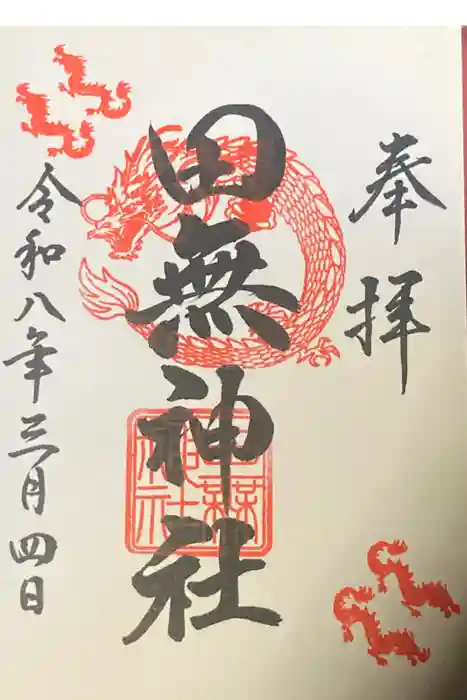 奉拝
田無神社
田無神社
令和八年三月四日